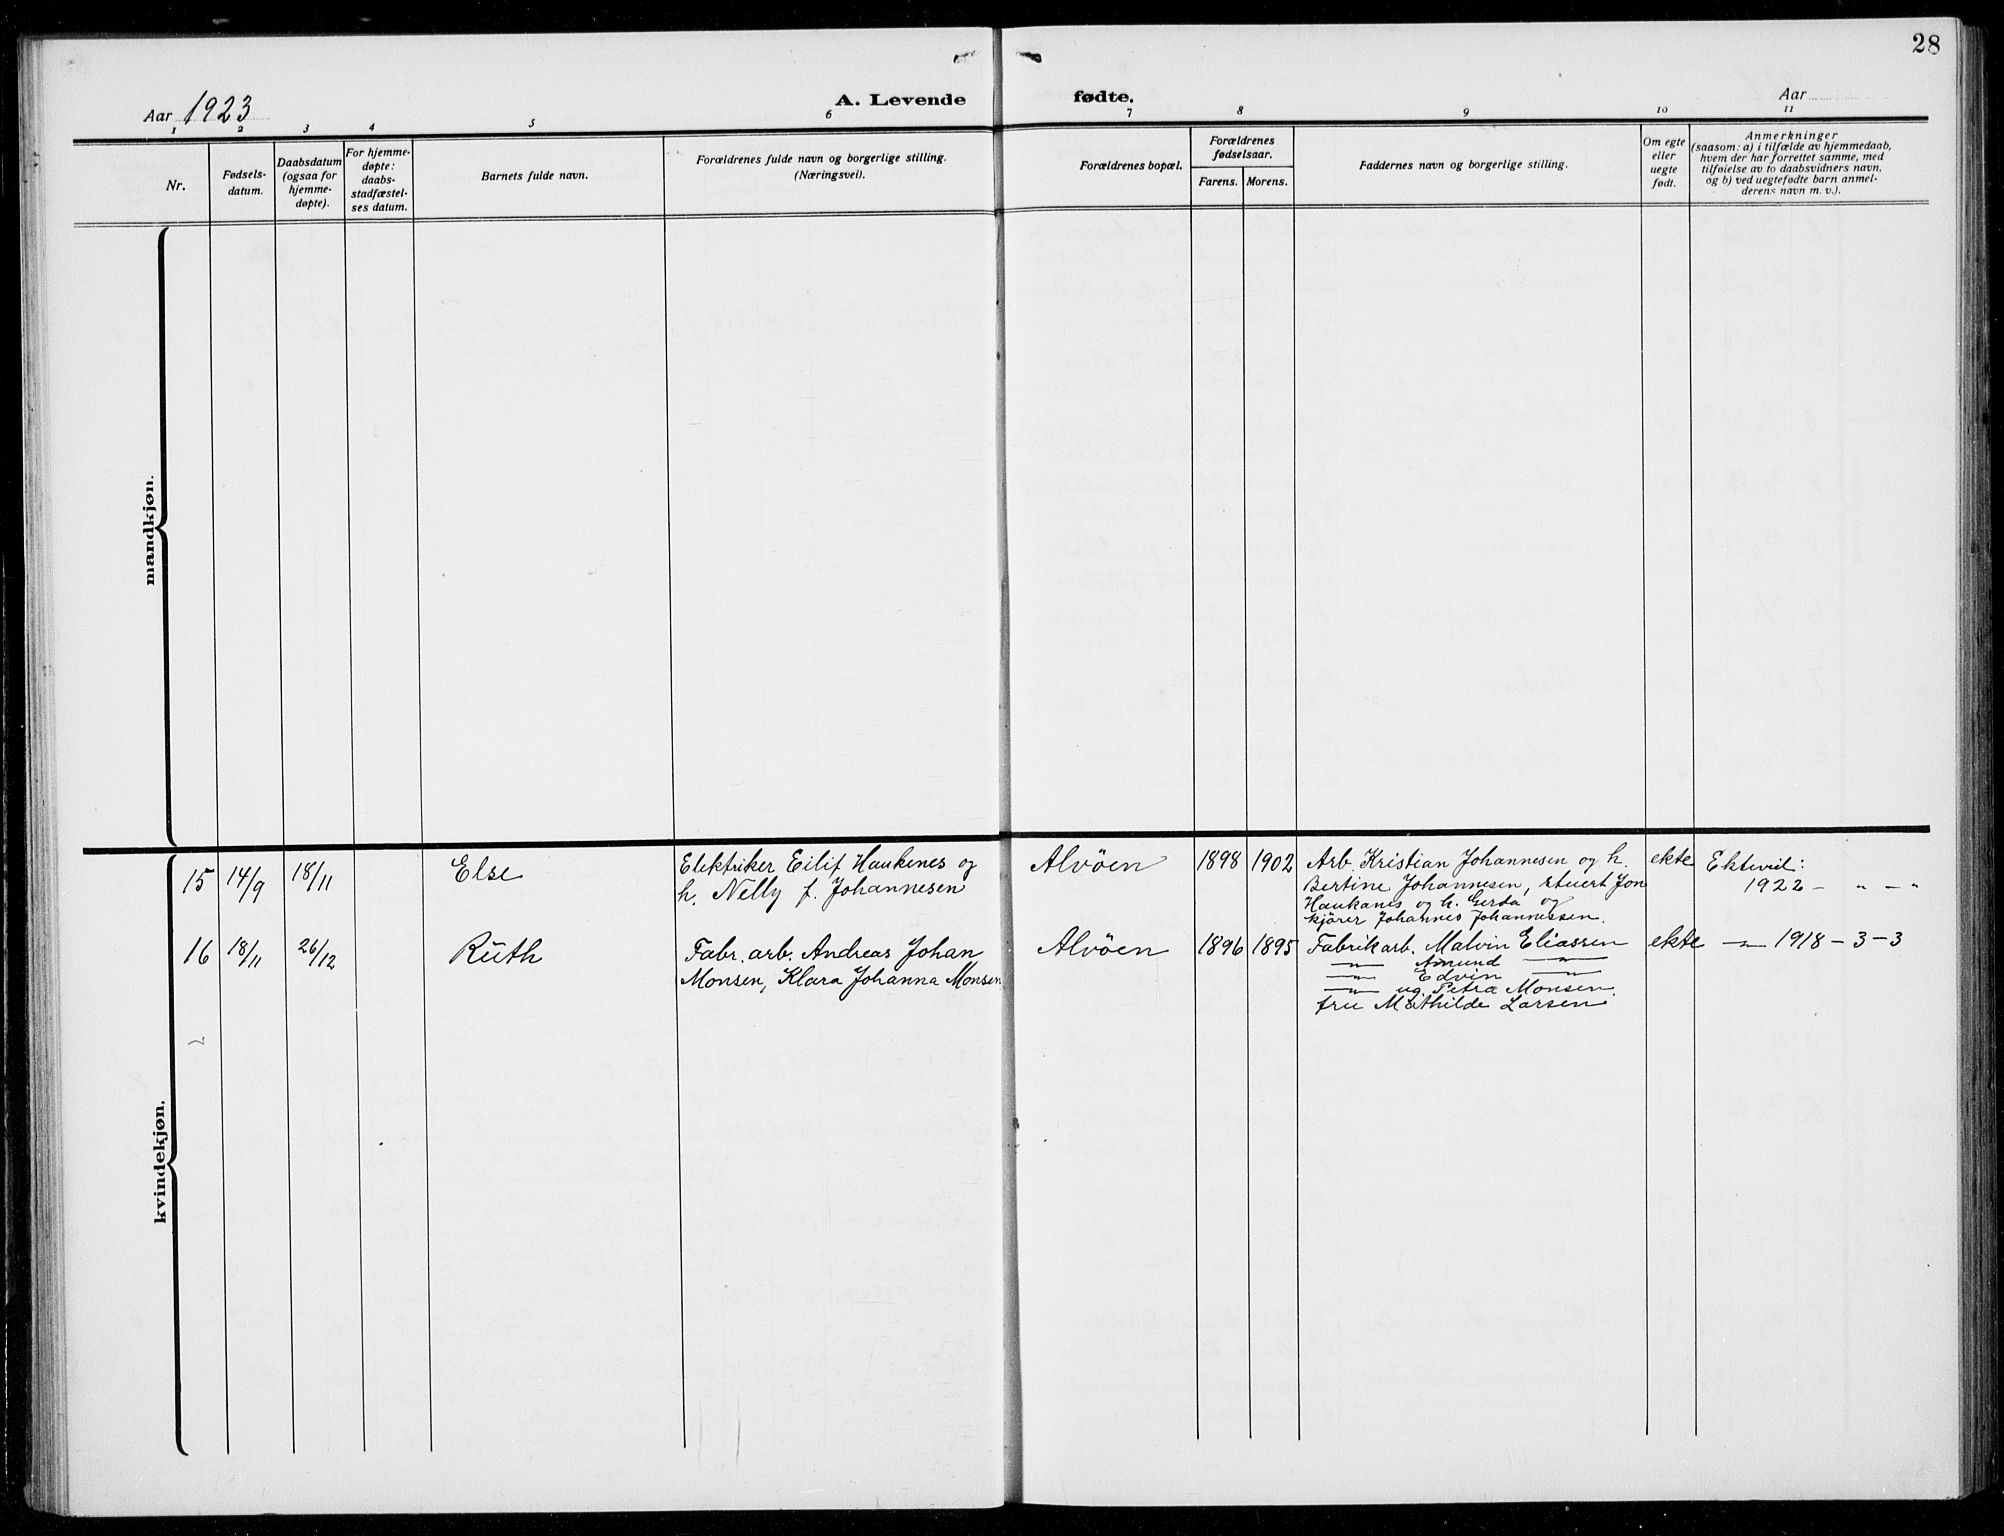 28
Aar 1923
A. Levende fødte.
Aar
1 2 3 4 5 6 7 8 9 10 11
Nr.
Fødsels-
datum.
Daabsdatum
(ogsaa for
hjemme-
døpte).
For hjemme-
døpte:
daabs-
stadfæstel-
ses datum.
Barnets fulde navn.
Forældrenes fulde navn og borgerlige stilling.
(Næringsvei).
Forældrenes bopæl.
Forældrenes
fødselsaar.
Farens. Morens.
Faddernes navn og borgerlige stilling.
Om egte
eller
uegte
født.
Anmerkninger
(saasom: a) i tilfælde av hjemmedaab,
hvem der har forrettet samme, med
tilføielse av to daabsvidners navn,
og b) ved uegtefødte barn anmel-
derens navn m. v.).
mandkjøn.
kvindekjøn.
15 14/9 18/11 Else
Elektriker Eilif Haukenes og
h. Nelly f. Johannesen
Alvöen 1898 1902
Arb. Kristian Johannesen og h.
Bertine Johannesen, stuert Jon
Haukanes og h. Gerda og
kjörer Johannes Johannessen.
ekte
Ektevid:
1922 – " – "
16 18/11 26/12 Ruth
Fabr. arb. Andreas Johan
Monsen, Klara Johanna Monsen
Alvöen 1896 1895
Fabrikarb. Malvin Eliassen
—"— Amund —"—
—"— Edvin —"—
—"— ug. Petra Monsen.
fru Mathilde Larsen
ekte
—"— 1918 – 3 – 3